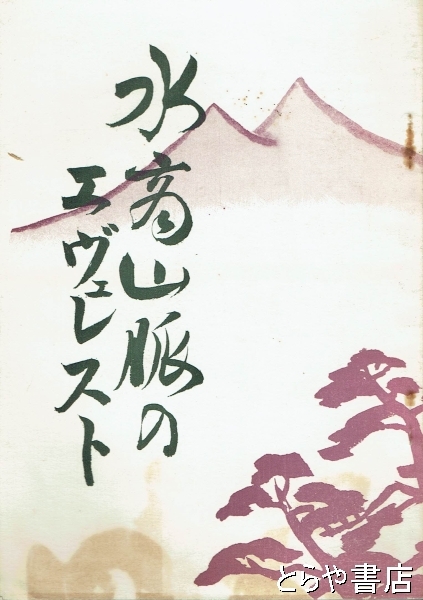 水高山脈の
エヴェレスト
とらや書店